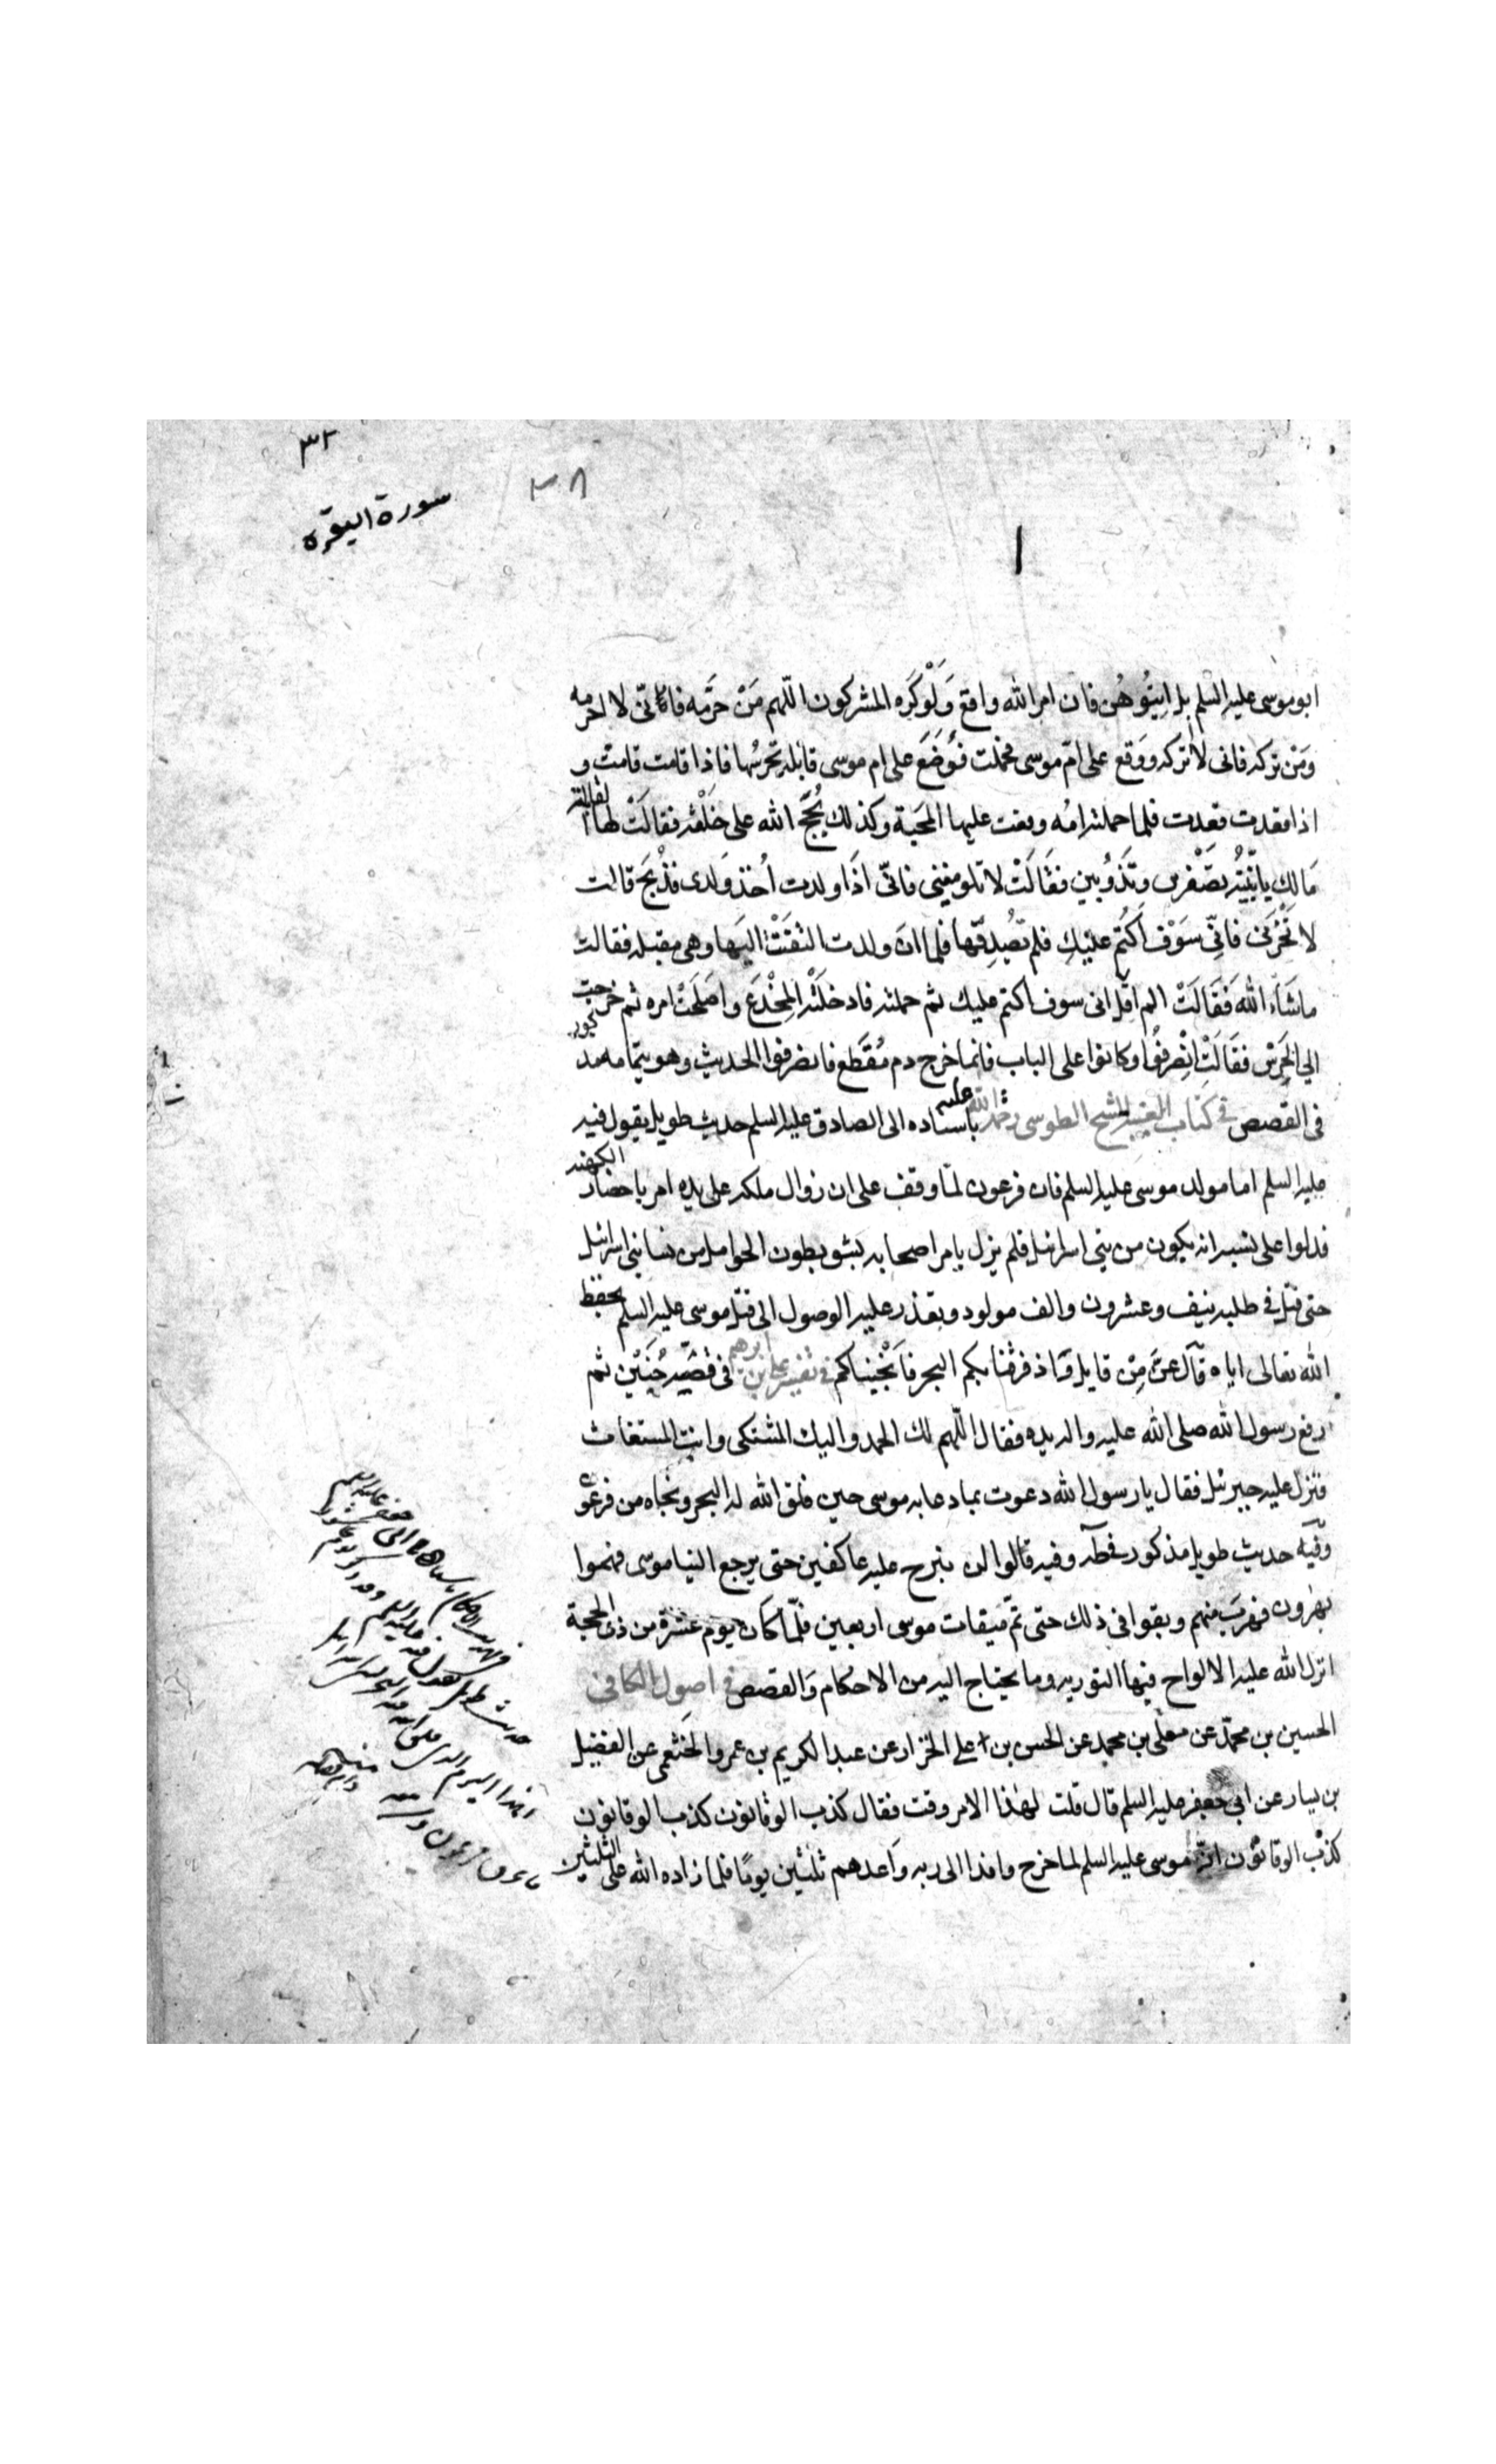 ٣٢
٣٨
سورة البقرة
ابو موسى عليه السلم بل ايتوهن فان امر الله واقع وَلَوْ كَرِه المشركون اللّهم مَنْ حرَّمه فانّى لا احرمه
وَمَن تركه فانى لا اتركه ووقع على امّ موسى فحملت فَوُضَعَ على ام موسى قابلة تحرسُها فاذا قامت قامت و
اذا قعدت قعدت فلما حملته امُه وقعت عليها المحَبة وكذلك حُجَج الله على خَلْقه فقالَتْ لها القابلة
مَالكِ يا بُنَيّة تصْفرين وتَذُوبين فقَالَتْ لا تلومينى فانّى اذَا ولدت اُخذ وَلدى فذُبحَ قالت
لا تَحْزَنى فانّى سَوْف اكتُم عليْكِ فلم تُصَدِقها فلما انَ ولدت التَفَتَتْ اليَها وهى مقبلة فقالت
ماشَآء الله فَقَالَتْ الم اقل انى سوف اكتم عليك ثم حملته فادخلَتْه المِخْدَع واصَلَحَتْ امره ثم خرجت
الي الحَرس فقَالَتِ انْصَرفُوا وكانوا على الباب فانما خرج دم مُنقَطع فانصرفوا الحديث وهو بتمامه مذكور
فى القصص فى كتاب الغيبة للشيخ الطوسى رحمة الله عليه باسناده الى الصادق عليه السلم حديث طويل يقول فيه
عليه السلم اما مولد موسى عليه السلم فان فرعون لمّا وقف على ان زوال ملكه على يده امر باحضار الكهنه
فدلوا على نسبه انه يكون من بنى اسرائيل فلم يزل يامر اصحابه بشق بطون الحوامل من نسا بنى اسرائيل
حتى قتل فى طلبه نيف وعشرون والف مولود وتعذر عليه الوصول الى قتل موسى عليه السلم بحفظ
الله تعالى اياه قآل عزّ مِن قايل وَاذ فرقنا بكم البحر فاَنْجيناكم فى تفسير على بن ابرهيم فى قصّة حُنَيْن ثم
رفع رسول الله صلى الله عليه واله يديه فقال اللّهم لك الحمد واليك المشتكى وانت المستعان
فنزل عليه جبرئيل فقال يا رسول الله دعوت بما دعا به موسى حين فلق الله له البحر ونجاه من فرعون
وفيه حديث طويل مذكور فى طه وفيه قالوا لن نبرح عليه عاكفين حتى يرجع الينا موسى فهموا
بهرون فهربَ منهم وبقوا فى ذلك حتى تمّ مّيقات موسى اربعين فلّما كان يوم عشرة من ذى الحجة
انزل الله عليه الالواح فيها التورية وما يحتاج اليه من الاحكام وَالقصص فى اصول الكافى
الحسين بن محمّد عن معلّى بن محمد عن الحسن بن على الخزاز عن عبد الكريم بن عمرو الخثعمى عن الفضيل
بن يسار عن ابى جعفر عليه السلم قال قلت لهٰذا الامر وقت فقال كذب الوقاتون كذب الوقاتون
كذب الوقاتون انّ موسى عليه السلم لما خرج وافدا الى ربه وَاعدهم ثلثين يومًا فلما زاده الله على الثلثين